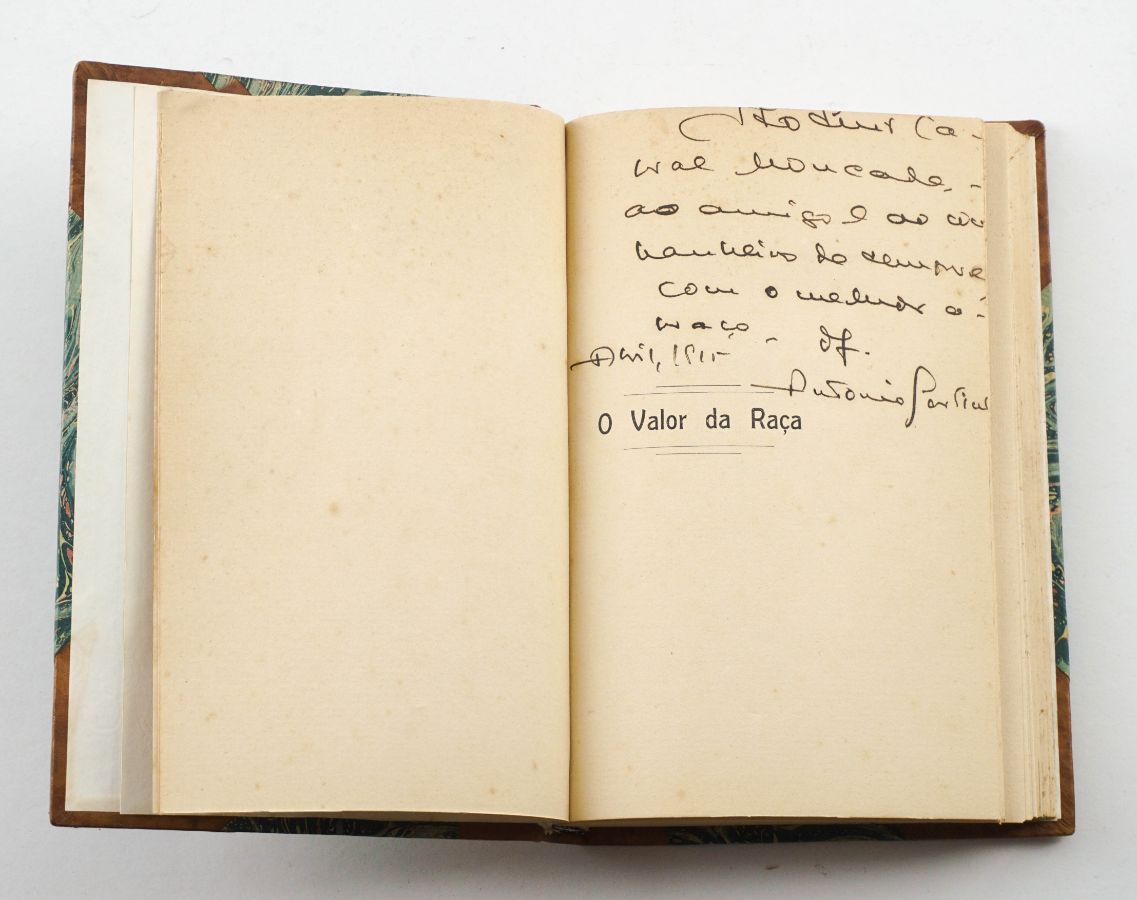 Ca-
bral Moncada, -
ao amigo e ao com
panheiro de sempre
com o melhor a-
braço - Of.
Abril, 1915
Antonio Sardinh
O Valor da Raça